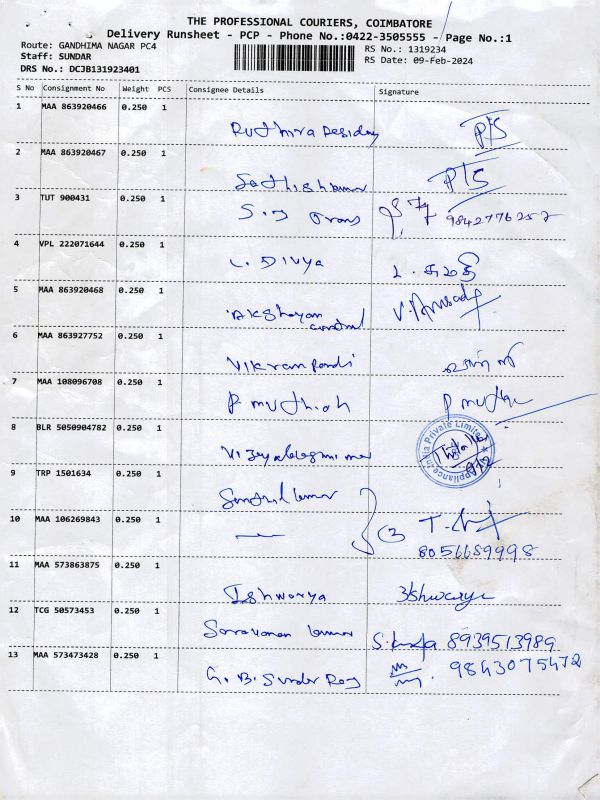 THE PROFESSIONAL COURIERS, COIMBATORE
Delivery Runsheet - PCP - Phone No.:0422-3505555 - Page No.:1
Route: GANDHIMA NAGAR PC4 RS No.: 1319234
Staff: SUNDAR RS Date: 09-Feb-2024
DRS No.: DCJB131923401
S No Consignment No Weight PCS Consignee Details Signature
1 MAA 863920466 0.250 1
Ruthira P/S
2 MAA 863920467 0.250 1
Sathishkumar P/S
3 TUT 900431 0.250 1
S.S Trans 9842776257
4 VPL 222071644 0.250 1
L. Divya L. சுமதி
5 MAA 863920468 0.250 1
Akshayam
6 MAA 863927752 0.250 1
Vikram Pandi
7 MAA 108096708 0.250 1
P. Muthiah P muthu
8 BLR 5050904782 0.250 1
Appliance India Private Limited
9 TRP 1501634 0.250 1
kumar
10 MAA 106269843 0.250 1
3 8056659998
11 MAA 573863875 0.250 1
Ishwarya Ishwarya
12 TCG 50573453 0.250 1
Saravanan kumar 8939513989
13 MAA 573473428 0.250 1
G. B. Sunder Raj 9843075472